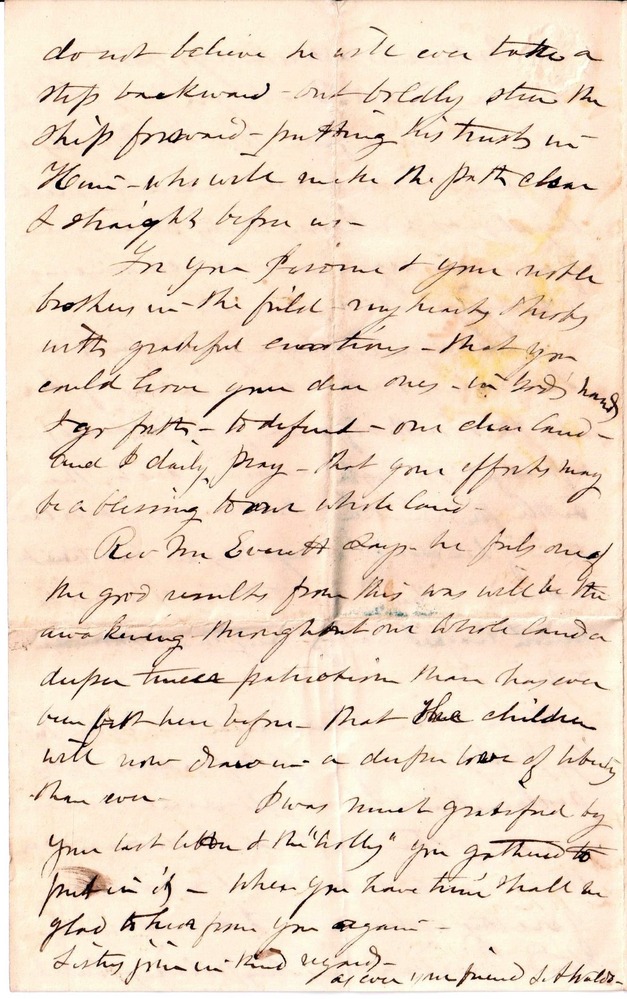 do not believe he will ever take a
step backward - but boldly steer the
ship forward - putting his trust in -
Him - who will make the path clear
& straight before us -
For you Jerome & your noble
brothers in - the field - my heart throbs
with grateful emotions - that you
could leave your dear ones - in God's hands
& go forth - to defend - our dear land -
and I daily pray - that your efforts may
be a blessing to our whole land -
Rev Mr Everett says - he feels one of
the good results from this war will be the
awakening throughout our whole land a
deeper truer patriotism than has ever
been felt here before - that the children
will now draw in - a deeper love of liberty
than ever - I was much gratified by
your last letter & the "holly" you gathered to
put in it - When you have time shall be
glad to hear from you again -
Sisters join in kind regards -
as ever your friend S. A. Waldo -